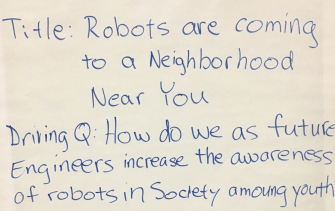 Title: Robots are coming
to a Neighborhood
Near You
Driving Q: How do we as future
Engineers increase the awareness
of robots in Society amoung youth